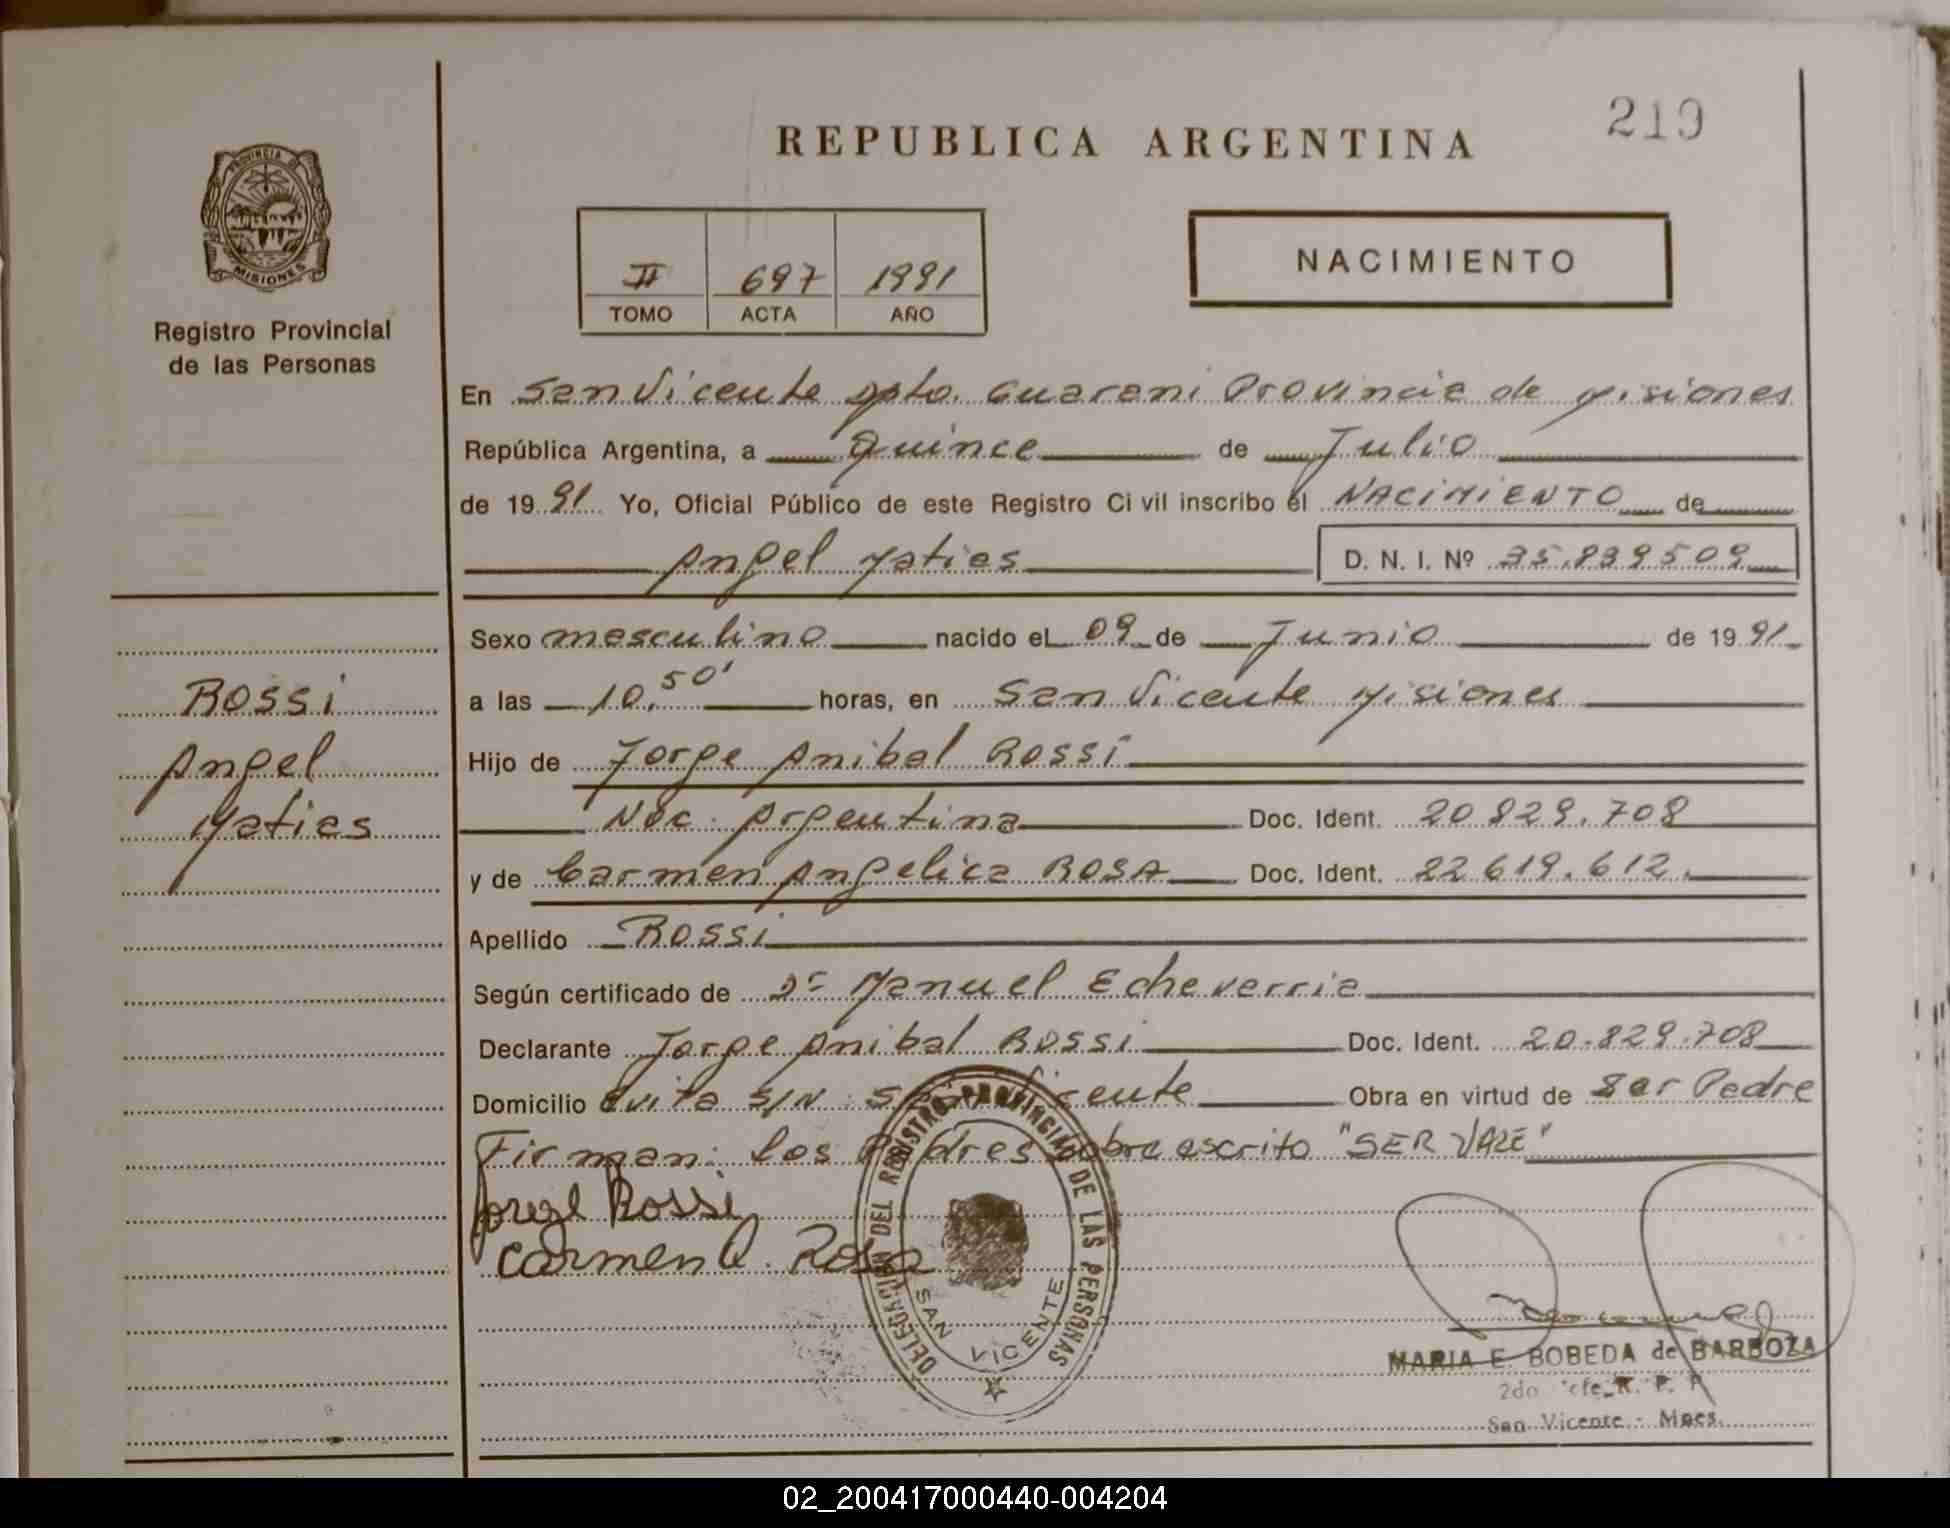 219
REPUBLICA ARGENTINA
PROVINCIA DE
MISIONES
Registro Provincial
de las Personas
II 697 1991
TOMO ACTA AÑO
NACIMIENTO
En San Vicente Dpto. Guarani Provincia de Misiones
República Argentina, a Quince de Julio
de 1991 Yo, Oficial Público de este Registro Civil inscribo el NACIMIENTO de
Angel Matias D. N. I. Nº 35.839509
Sexo masculino nacido el 09 de Junio de 1991
a las 10,50' horas, en San Vicente Misiones
Hijo de Jorge Anibal Rossi
Nac. Argentina Doc. Ident. 20 829.708
y de Carmen Angelica ROSA Doc. Ident. 22 619.612.
Apellido Rossi
Según certificado de Dr Manuel Echeverria
Declarante Jorge Anibal Rossi Doc. Ident. 20.829.708
Domicilio Evita S/N San Vicente Obra en virtud de Ser Padre
Firman: los Padres sobre escrito "SER VALE"
Jorge Rossi
Carmen A. Rosa
Rossi
Angel
Matias
DELEGACION DEL REGISTRO PROVINCIAL DE LAS PERSONAS
SAN VICENTE
MARIA E. BOBEDA de BARBOZA
2do Jefe R. P. P
San Vicente - Mnes.
02_200417000440-004204